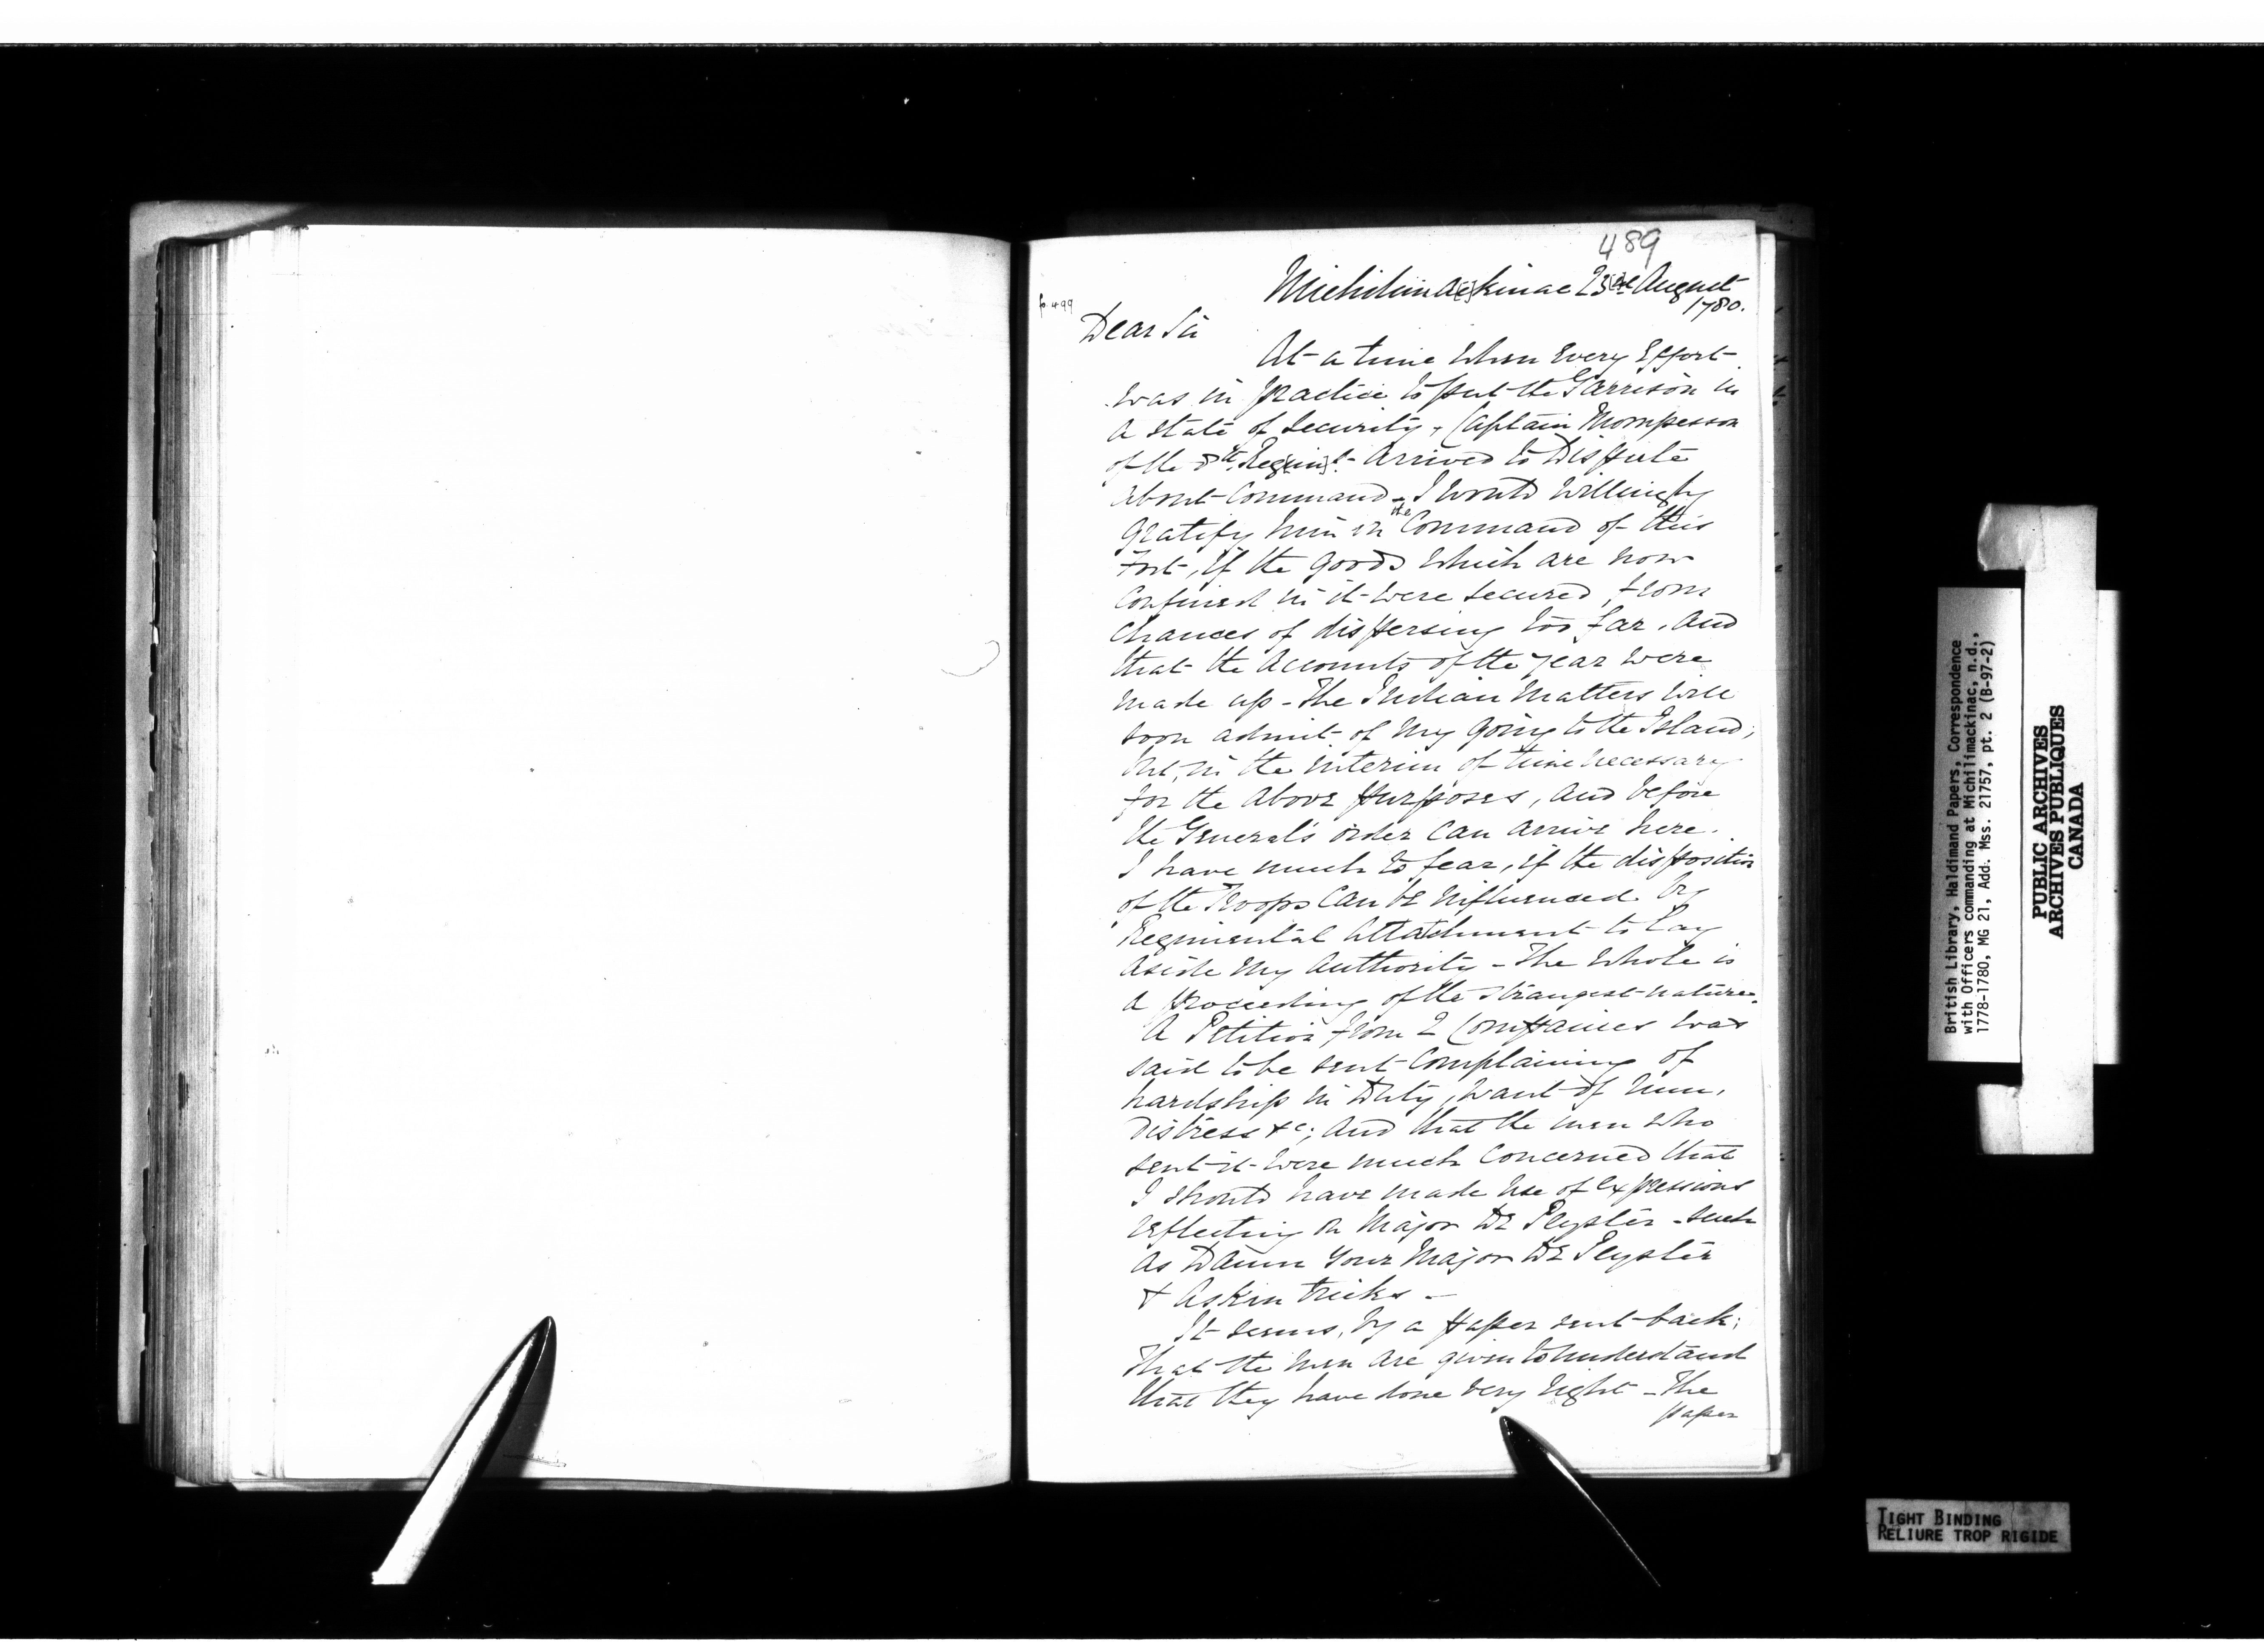 489
Michilima[c]kinac 23[rd] August
1780.
p. 499
Dear Sir
At a time when Every Effort
was in practice to put the Garrison in
a state of Security, Captain Mompesson
of the 8th Reg[im]t. arrived to Dispute
about Command - I would willingly
gratify him in the Command of this
Fort, if the goods which are now
Confined in it were secured, from
chances of dispersing too far, and
that the accounts of the year were
made up - The Indian Matters will
soon admit of my going to the Island;
but, in the interim of time necessary
for the above purposes, and before
the General's order can arrive here.
I have much to fear, if the disposition
of the Troops can be influenced by
Regimental attachment to lay
aside my authority - The whole is
a proceeding of the strangest nature.
A Petition from 2 Companies was
said to be sent complaining of
hardship in Duty, want of Rum,
distress &c; and that the men who
sent it were much Concerned that
I should have made use of expressions
reflecting on Major De Peyster - such
as Damn your Major De Peyster
& Askin tricks -
It seems, by a paper sent back;
that the men are given to understand
that they have done very right - The
paper
British Library, Haldimand Papers, Correspondence
with Officers commanding at Michilimackinac, n.d.,
1778-1780, MG 21, Add. Mss. 21757, pt. 2 (B-97-2)
PUBLIC ARCHIVES
ARCHIVES PUBLIQUES
CANADA
TIGHT BINDING
RELIURE TROP RIGIDE